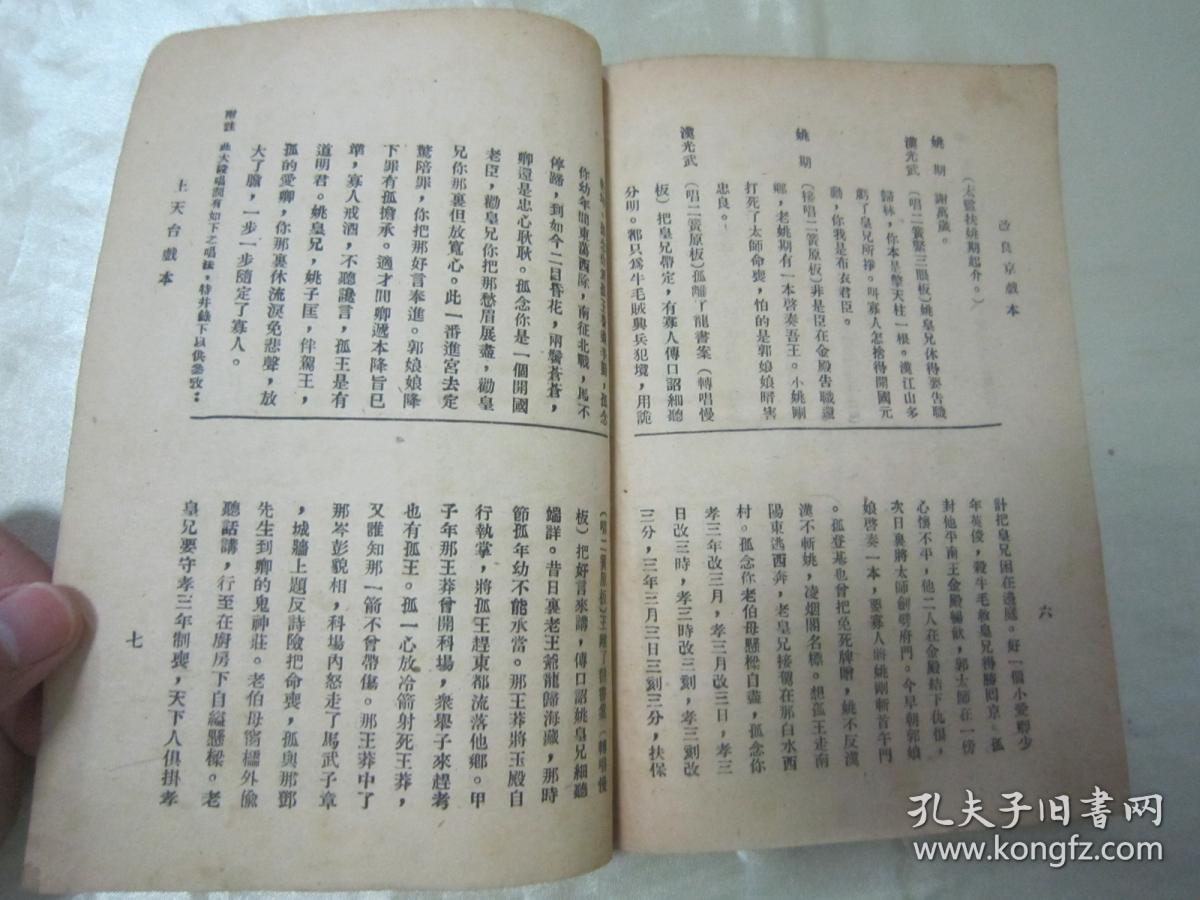 改良京戲本
六
(太監扶姚期起介。)
姚期 謝萬歲。
漢光武 (唱二簧緊三眼板)姚皇兄休得要告職
歸林,你本是擎天柱一根。漢江山多
虧了皇兄所掙。叫寡人怎捨得開國元
勳,你我是布衣君臣。
姚期 (接唱二簧原板)非是臣在金殿告職還
鄉,老姚期有一本啓奏吾王。小姚剛
打死了太師命喪,怕的是郭娘娘暗害
忠良。
漢光武 (唱二簧原板)孤離了龍書案(轉唱慢
板)把皇兄帶定,有寡人傳口詔細聽
分明。都只爲牛毛賊興兵犯境,用詭
計把皇兄困在邊庭。好一個小愛卿少
年英俊,殺牛毛救皇兄得勝囘京。孤
封他平南王金殿暢飲,郭太師在一傍
心懷不平,他二人在金殿結下仇恨,
次日裏將太師劍劈府門。今早朝郭娘
娘啓奏一本,要寡人將姚剛斬首午門
。孤登基也曾把免死牌贈,姚不反漢
漢不斬姚,凌烟閣名標。想孤王走南
陽東逃西奔,老皇兄接駕在那白水西
村。孤念你老伯母懸樑自盡,孤念你
孝三年改三月,孝三月改三日,孝三
日改三時,孝三時改三刻,孝三刻改
三分,三年三月三日三刻三分,扶保
孤念
你幼年間東蕩西除,南征北戰,馬不
停蹄,到如今二目昏花,兩鬢蒼蒼,
卿還是忠心耿耿。孤念你是一個開國
老臣,勸皇兄你把那愁眉展盡,勸皇
兄你那裏但放寬心。此一番進宮去定
驚陪罪,你把那好言奉進。郭娘娘降
下罪有孤擔承。適才間卿遞本降旨已
準,寡人戒酒,不聽讒言,孤王是有
道明君。姚皇兄,姚子匡,伴駕王,
孤的愛卿,你那裏休流淚免悲聲,放
大了膽,一步一步隨定了寡人。
附註 此大段唱詞有如下之唱法,特并錄下以供參攷:
(唱二簧原板)王離了龍書案(轉唱慢
板)把好言來講,傳口詔姚皇兄細聽
端詳。昔日裏老王爺龍歸海藏,那時
節孤年幼不能承當。那王莽將玉殿自
行執掌,將孤王趕東都流落他鄉。甲
子年那王莽曾開科場,衆舉子來趕考
也有孤王。孤一心放冷箭射死王莽,
又誰知那一箭不曾帶傷。那王莽中了
那岑彭貌相,科場內怒走了馬武子章
,城牆上題反詩險把命喪,孤與那鄧
先生到卿的鬼神莊。老伯母窗櫺外偸
聽話講,行至在廚房下自縊懸樑。老
皇兄要守孝三年制喪,天下人俱掛孝
上天台戲本
七
孔夫子旧书网
www.kongfz.com